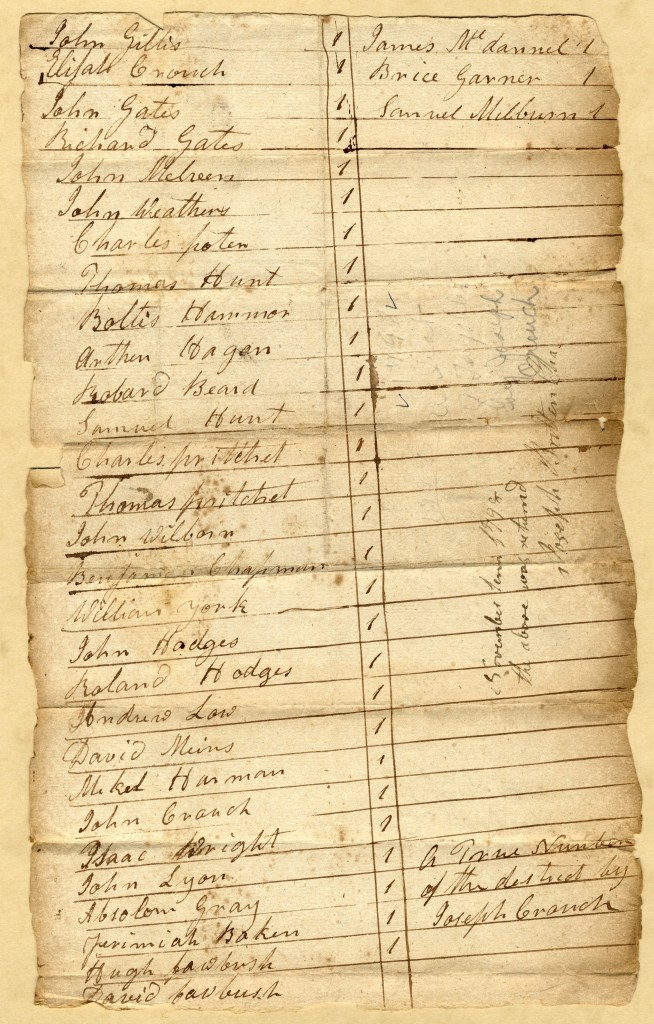 John Gillis 1
Elijah Crouch 1
John Gates 1
Richard Gates 1
John Melveen 1
John Weathers 1
Charles poten 1
Thomas Hunt 1
Boltis Hammor 1
Arthen Hagan 1
Robard Beard 1
Samuel Hunt 1
Charles pritchet 1
Thomas pritchet 1
John Wilborn 1
Benjaman Chapman 1
William York 1
John Hodges 1
Roland Hodges 1
Andrew Low 1
David Meins 1
Mikel Harman 1
John Crouch 1
Isaac Wright 1
John Lyon 1
Absolom Gray 1
Jerimiah Baker 1
Hugh fawbush
David fawbush
James Mcdannel 1
Brice Garner 1
Samuel Milburn 1
A True Number
of the destrect by
Joseph Crouch
November term 1798
the above was returnd
Joseph
Crouch